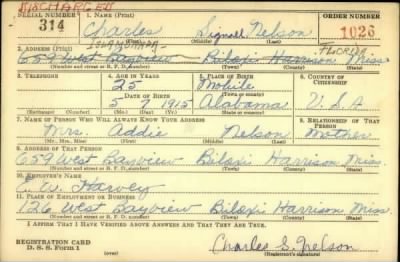 DISCHARGED
SERIAL NUMBER 1. NAME (Print) ORDER NUMBER
314 Charles Signell Nelson 1026
(First) (Middle) (Last)
2. ADDRESS (Print) FLORIDA
659 West Bayview Biloxi Harrison Miss
(Number and street or R. F. D. number) (Town) (County) (State)
3. TELEPHONE 4. AGE IN YEARS 5. PLACE OF BIRTH 6. COUNTRY OF CITIZENSHIP
25 Mobile
DATE OF BIRTH (Town or county)
5 7 1915 Alabama U.S.A
(Exchange) (Number) (Mo.) (Day) (Yr.) (State or country)
7. NAME OF PERSON WHO WILL ALWAYS KNOW YOUR ADDRESS 8. RELATIONSHIP OF THAT PERSON
Mrs. Addie Nelson Mother
(Mr., Mrs., Miss) (First) (Middle) (Last)
9. ADDRESS OF THAT PERSON
659 West Bayview Biloxi Harrison Miss.
(Number and street or R. F. D. number) (Town) (County) (State)
10. EMPLOYER'S NAME
E. W. Harvey
11. PLACE OF EMPLOYMENT OR BUSINESS
126 West Bayview Biloxi Harrison Miss.
(Number and street or R. F. D. number) (Town) (County) (State)
I AFFIRM THAT I HAVE VERIFIED ABOVE ANSWERS AND THAT THEY ARE TRUE.
REGISTRATION CARD
D. S. S. Form 1 Charles S. Nelson
(Registrant's signature)